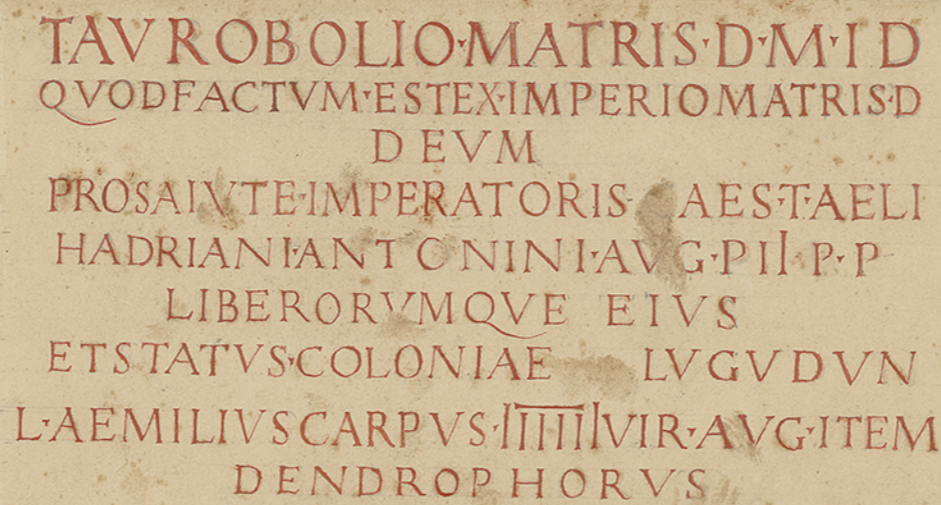 TAVROBOLIO·MATRIS·D·M·I D
QVODFACTVM·ESTEX·IMPERIOMATRIS·D
DEVM
PROSAIVTE·IMPERATORIS· AES·T·AELI
HADRIANI·ANTONINI·AVG·PII·P·P
LIBERORVMQVE EIVS
ETSTATVS·COLONIAE LVGVDVN
L·AEMILIVSCARPVS·IIIIIIVIR·AVG·ITEM
DENDROPHORVS